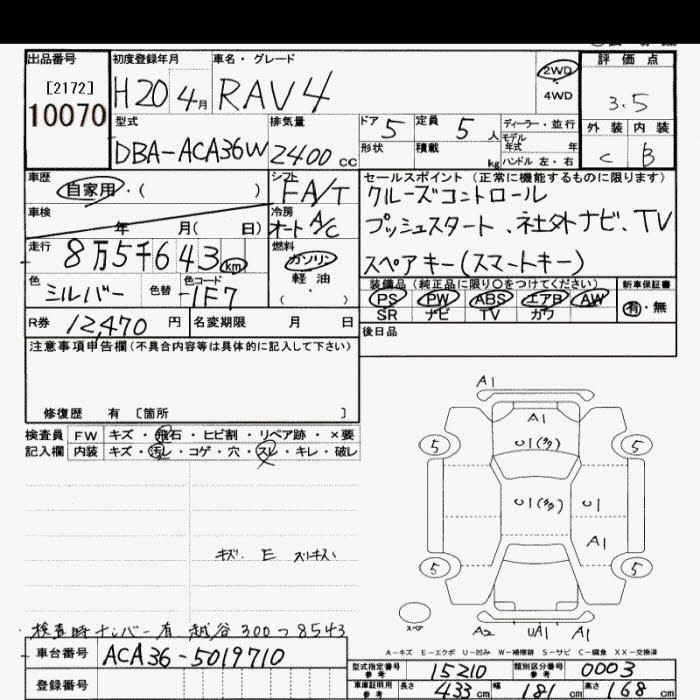 出品番号 初度登録年月 車名・グレード 評価点
[2172]
10070
H20 4月 RAV4 2WD 4WD 3.5
外装 内装
C B
型式 排気量 ドア 5 定員 5人 ディーラー・並行
モデル年式 年
DBA-ACA36W 2400cc 形状 積載 kg ハンドル 左・右
車歴 シフト セールスポイント (正常に機能するものに限ります)
自家用・( ) FA/T クルーズコントロール
車検 冷房 プッシュスタート、社外ナビ、TV
年 月( 日) オート A/C
走行 燃料 スペアキー(スマートキー)
8万5千643km ガソリン
軽油
・( )
装備品(純正品に限り○をつけてください) 新車保証書
色 色替 色コード PS PW ABS エアB AW 有・無
シルバー 1F7 SR ナビ TV カワ
R券 12,470円 名変期限 月 日 後日品
注意事項申告欄(不具合内容等は具体的に記入して下さい)
修復歴 有 〔箇所 〕
検査員 FW キズ・飛石・ヒビ割・リペア跡・×要
記入欄 内装 キズ・汚レ・コゲ・穴・スレ・キレ・破レ
A1
A1
U1(多)
5 5
U1(多) U1
A1
5 5
キズ. E スリキズ
スペア A2 UA1 A1
検査時ナンバー有 越谷300つ8543
A-キズ E-エクボ U-凹み W-補修跡 S-サビ C-腐食 XX-交換済
車台番号 ACA36-5019710
型式指定番号 参考 15210 類別区分番号 参考 0003
登録番号
車庫証明用 参考 長さ 433cm 幅 181cm 高さ 168cm